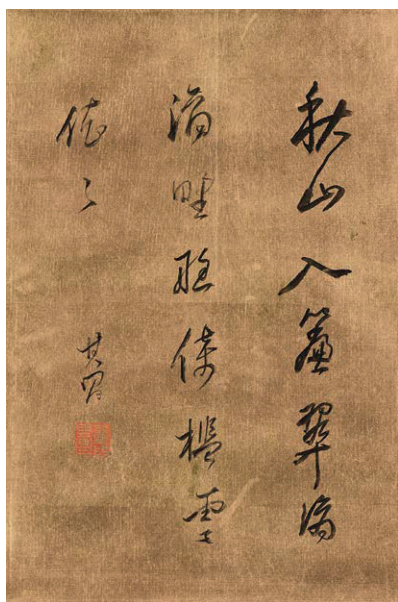 秋山入簾翠滴
滴野艇倚檻雲
依〻
其昌